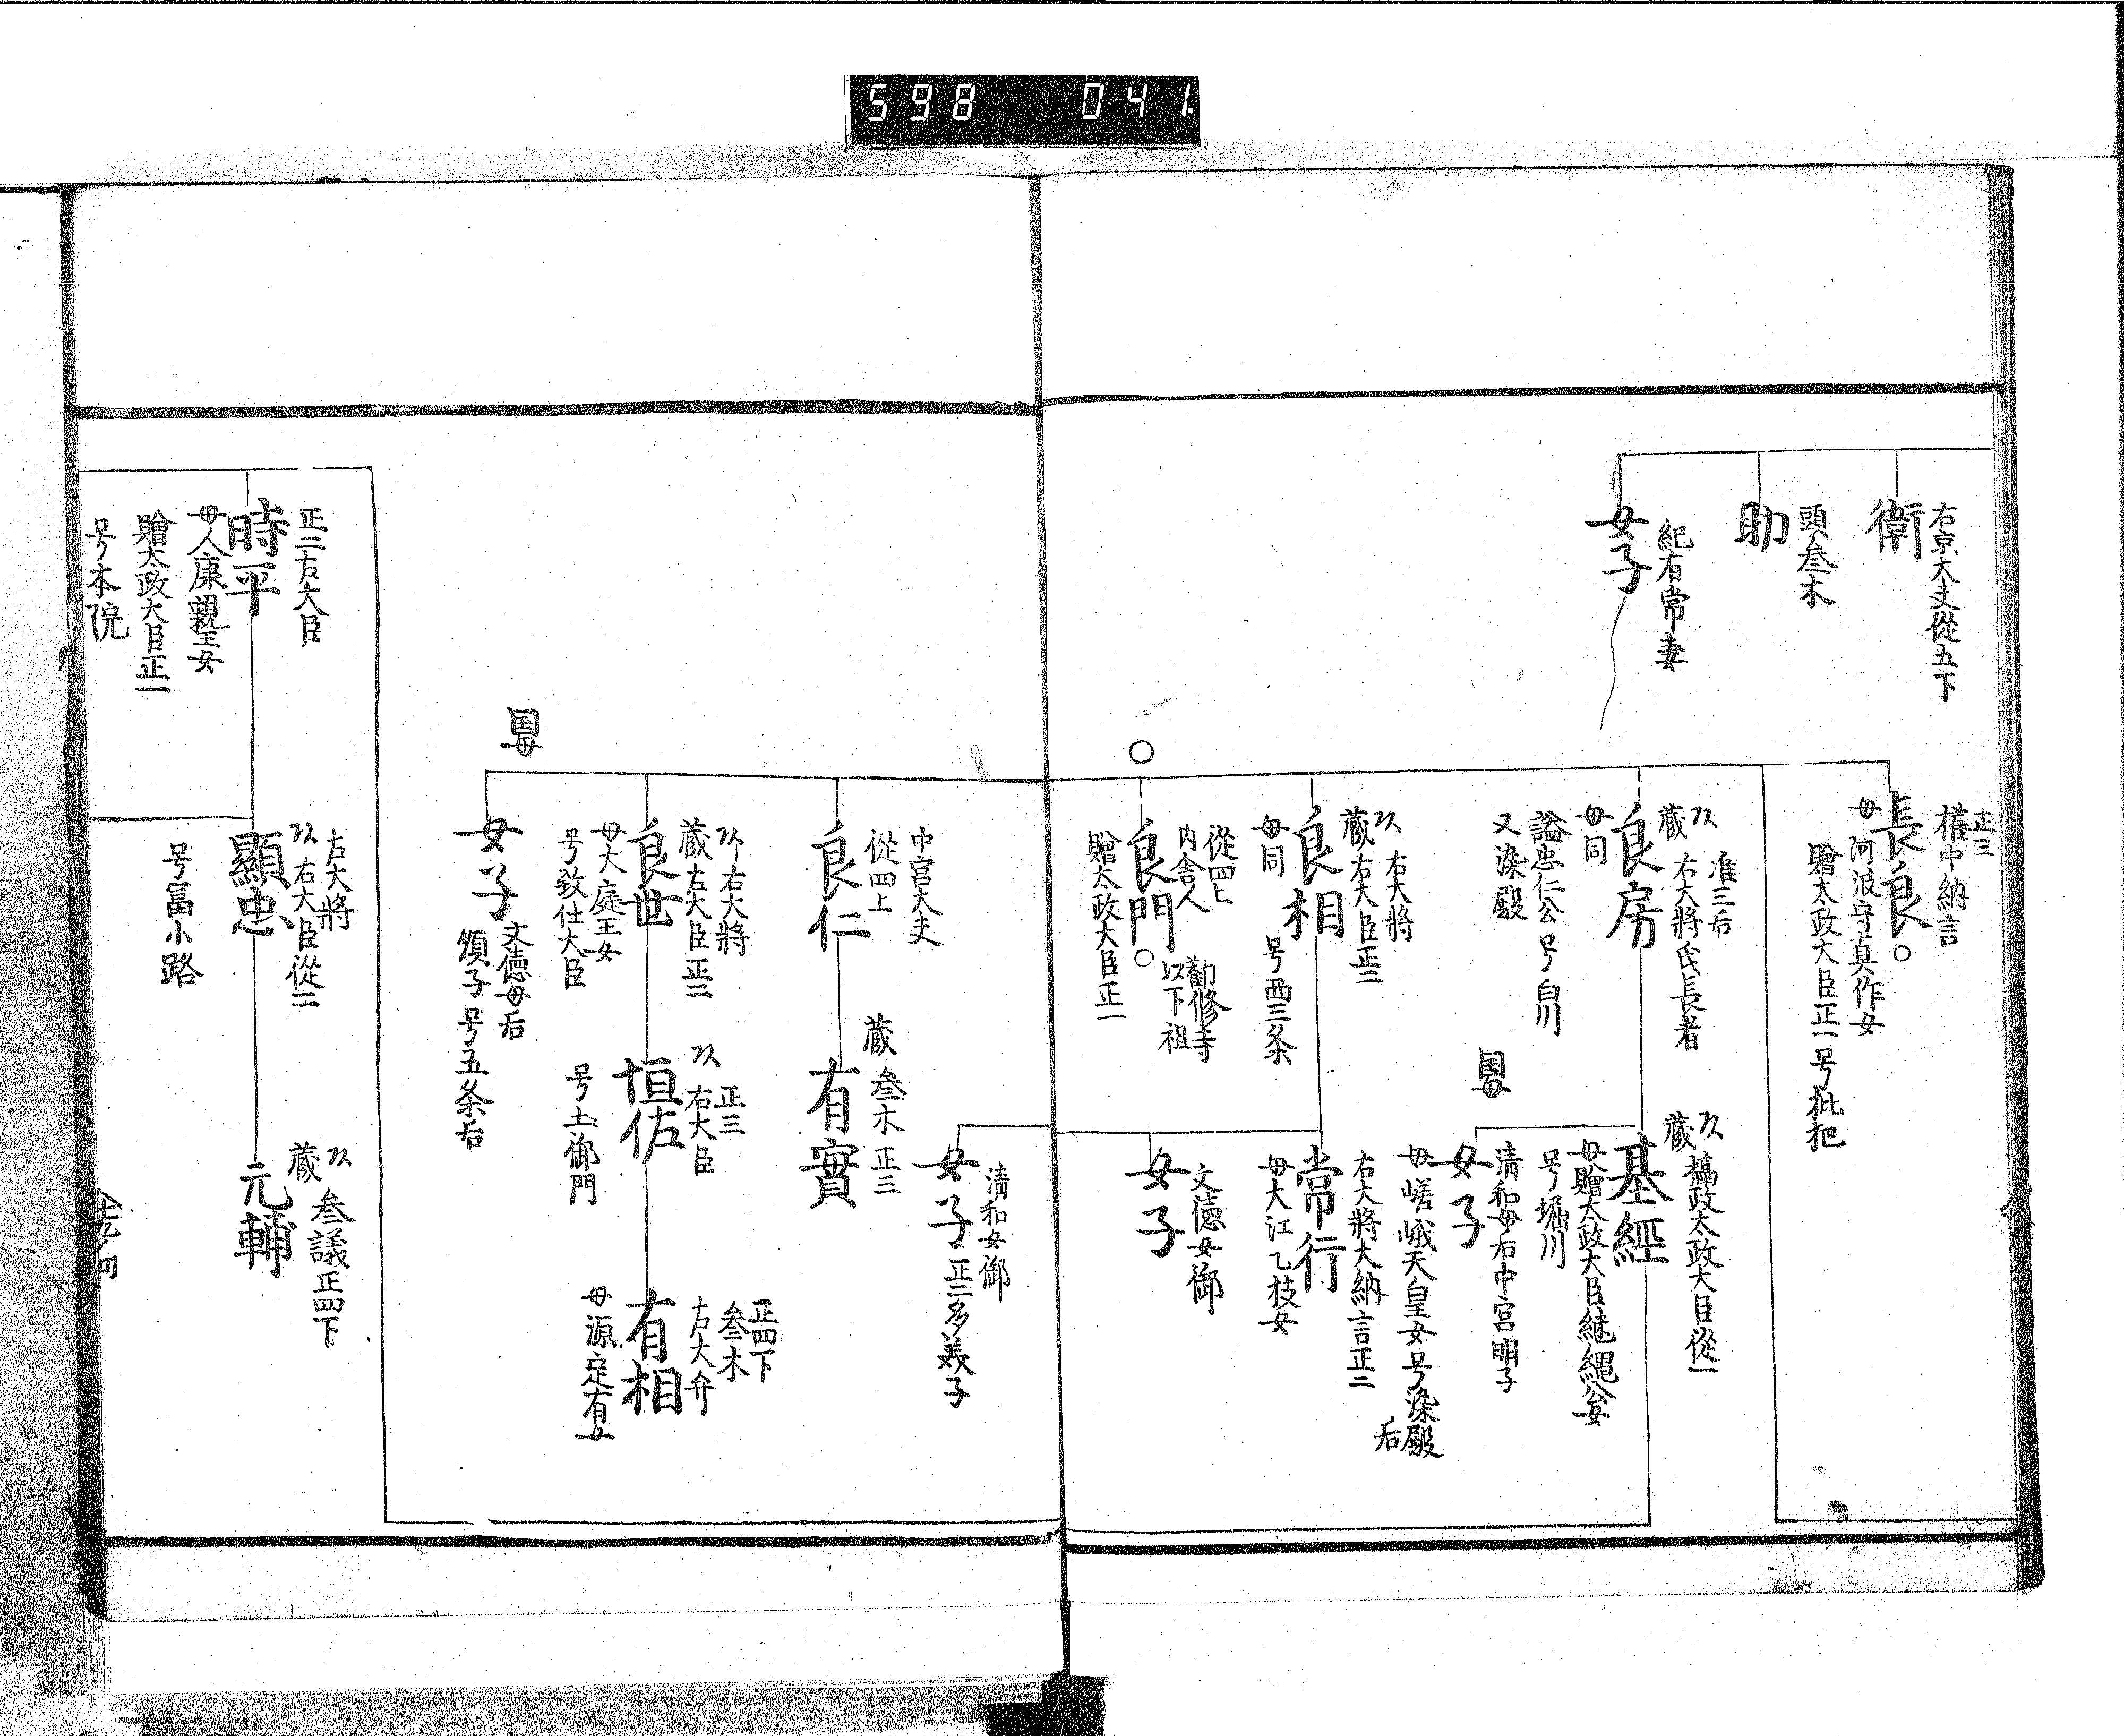 598 041
右京大夫從五下
衛
頭叅木
助
紀有常妻
女子
正三
權中納言
長良
母阿波守真作女
贈太政大臣正一号批把
准三后
右大將氏長者
蔵
良房
母同
謚忠仁公号白川
又染殿
蔵
攝政太政大臣從一
基經
母贈太政大臣継縄公女
号堀川
国母
清和母后中宮明子
女子
母嵯峨天皇女号染殿
后
右大將
蔵右大臣正二
良相
母同
号西三条
右大將大納言正二
常行
母大江乙枝女
文德女御
女子
從四上
内舎人
良門
勸修寺
以下祖
贈太政大臣正一
清和女御
女子
正三多美子
中宮大夫
從四上
良仁
蔵叅木正三
有實
右大將
蔵左大臣正二
良世
母大庭王女
号致仕大臣
正三
右大臣
恒佐
号土御門
正四下
叅木
右大弁
有相
母源定有女
国母
女子
文德母后
順子号五条后
正二左大臣
時平
母人康親王女
贈太政大臣正一
号本院
右大將
右大臣從二
顯忠
号冨小路
蔵
叅議正四下
元輔